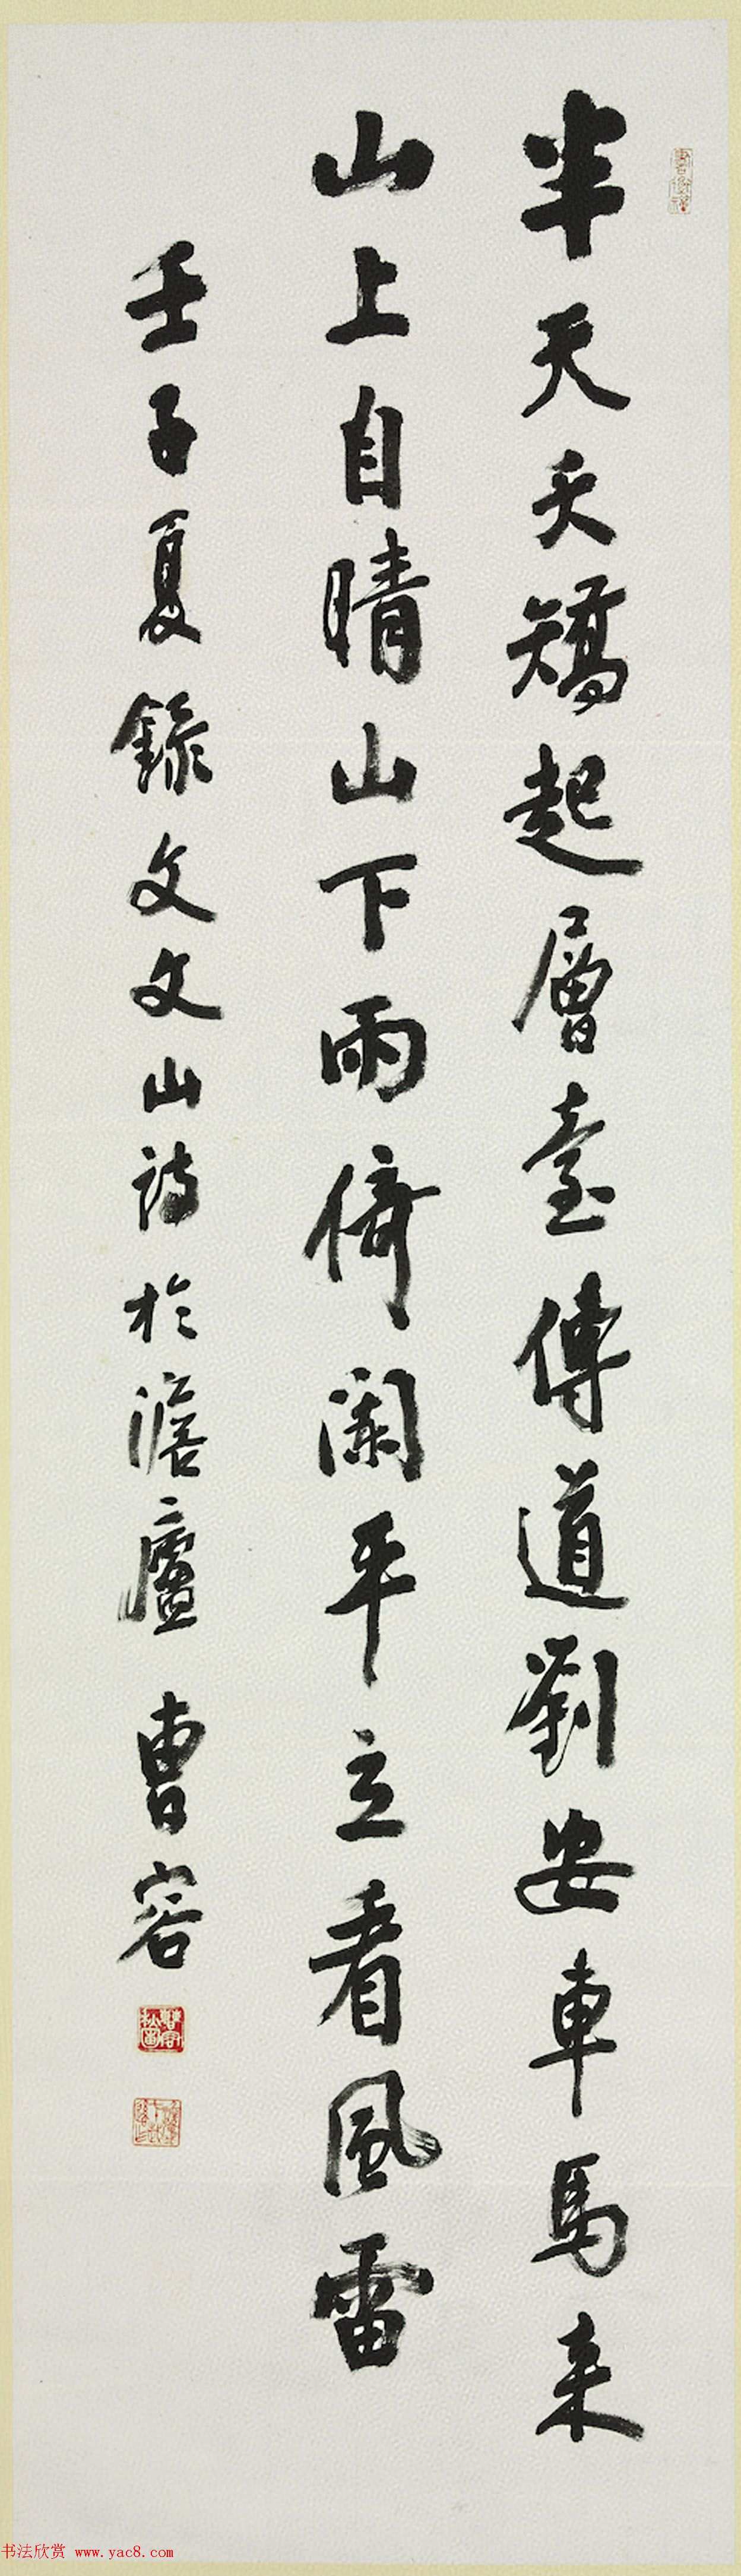 半天夭矯起層臺傳道劉安車馬来
山上自晴山下雨倚闌平立看風雷
壬子夏錄文文山詩於澹廬 曹容
书法欣赏 www.yac8.com